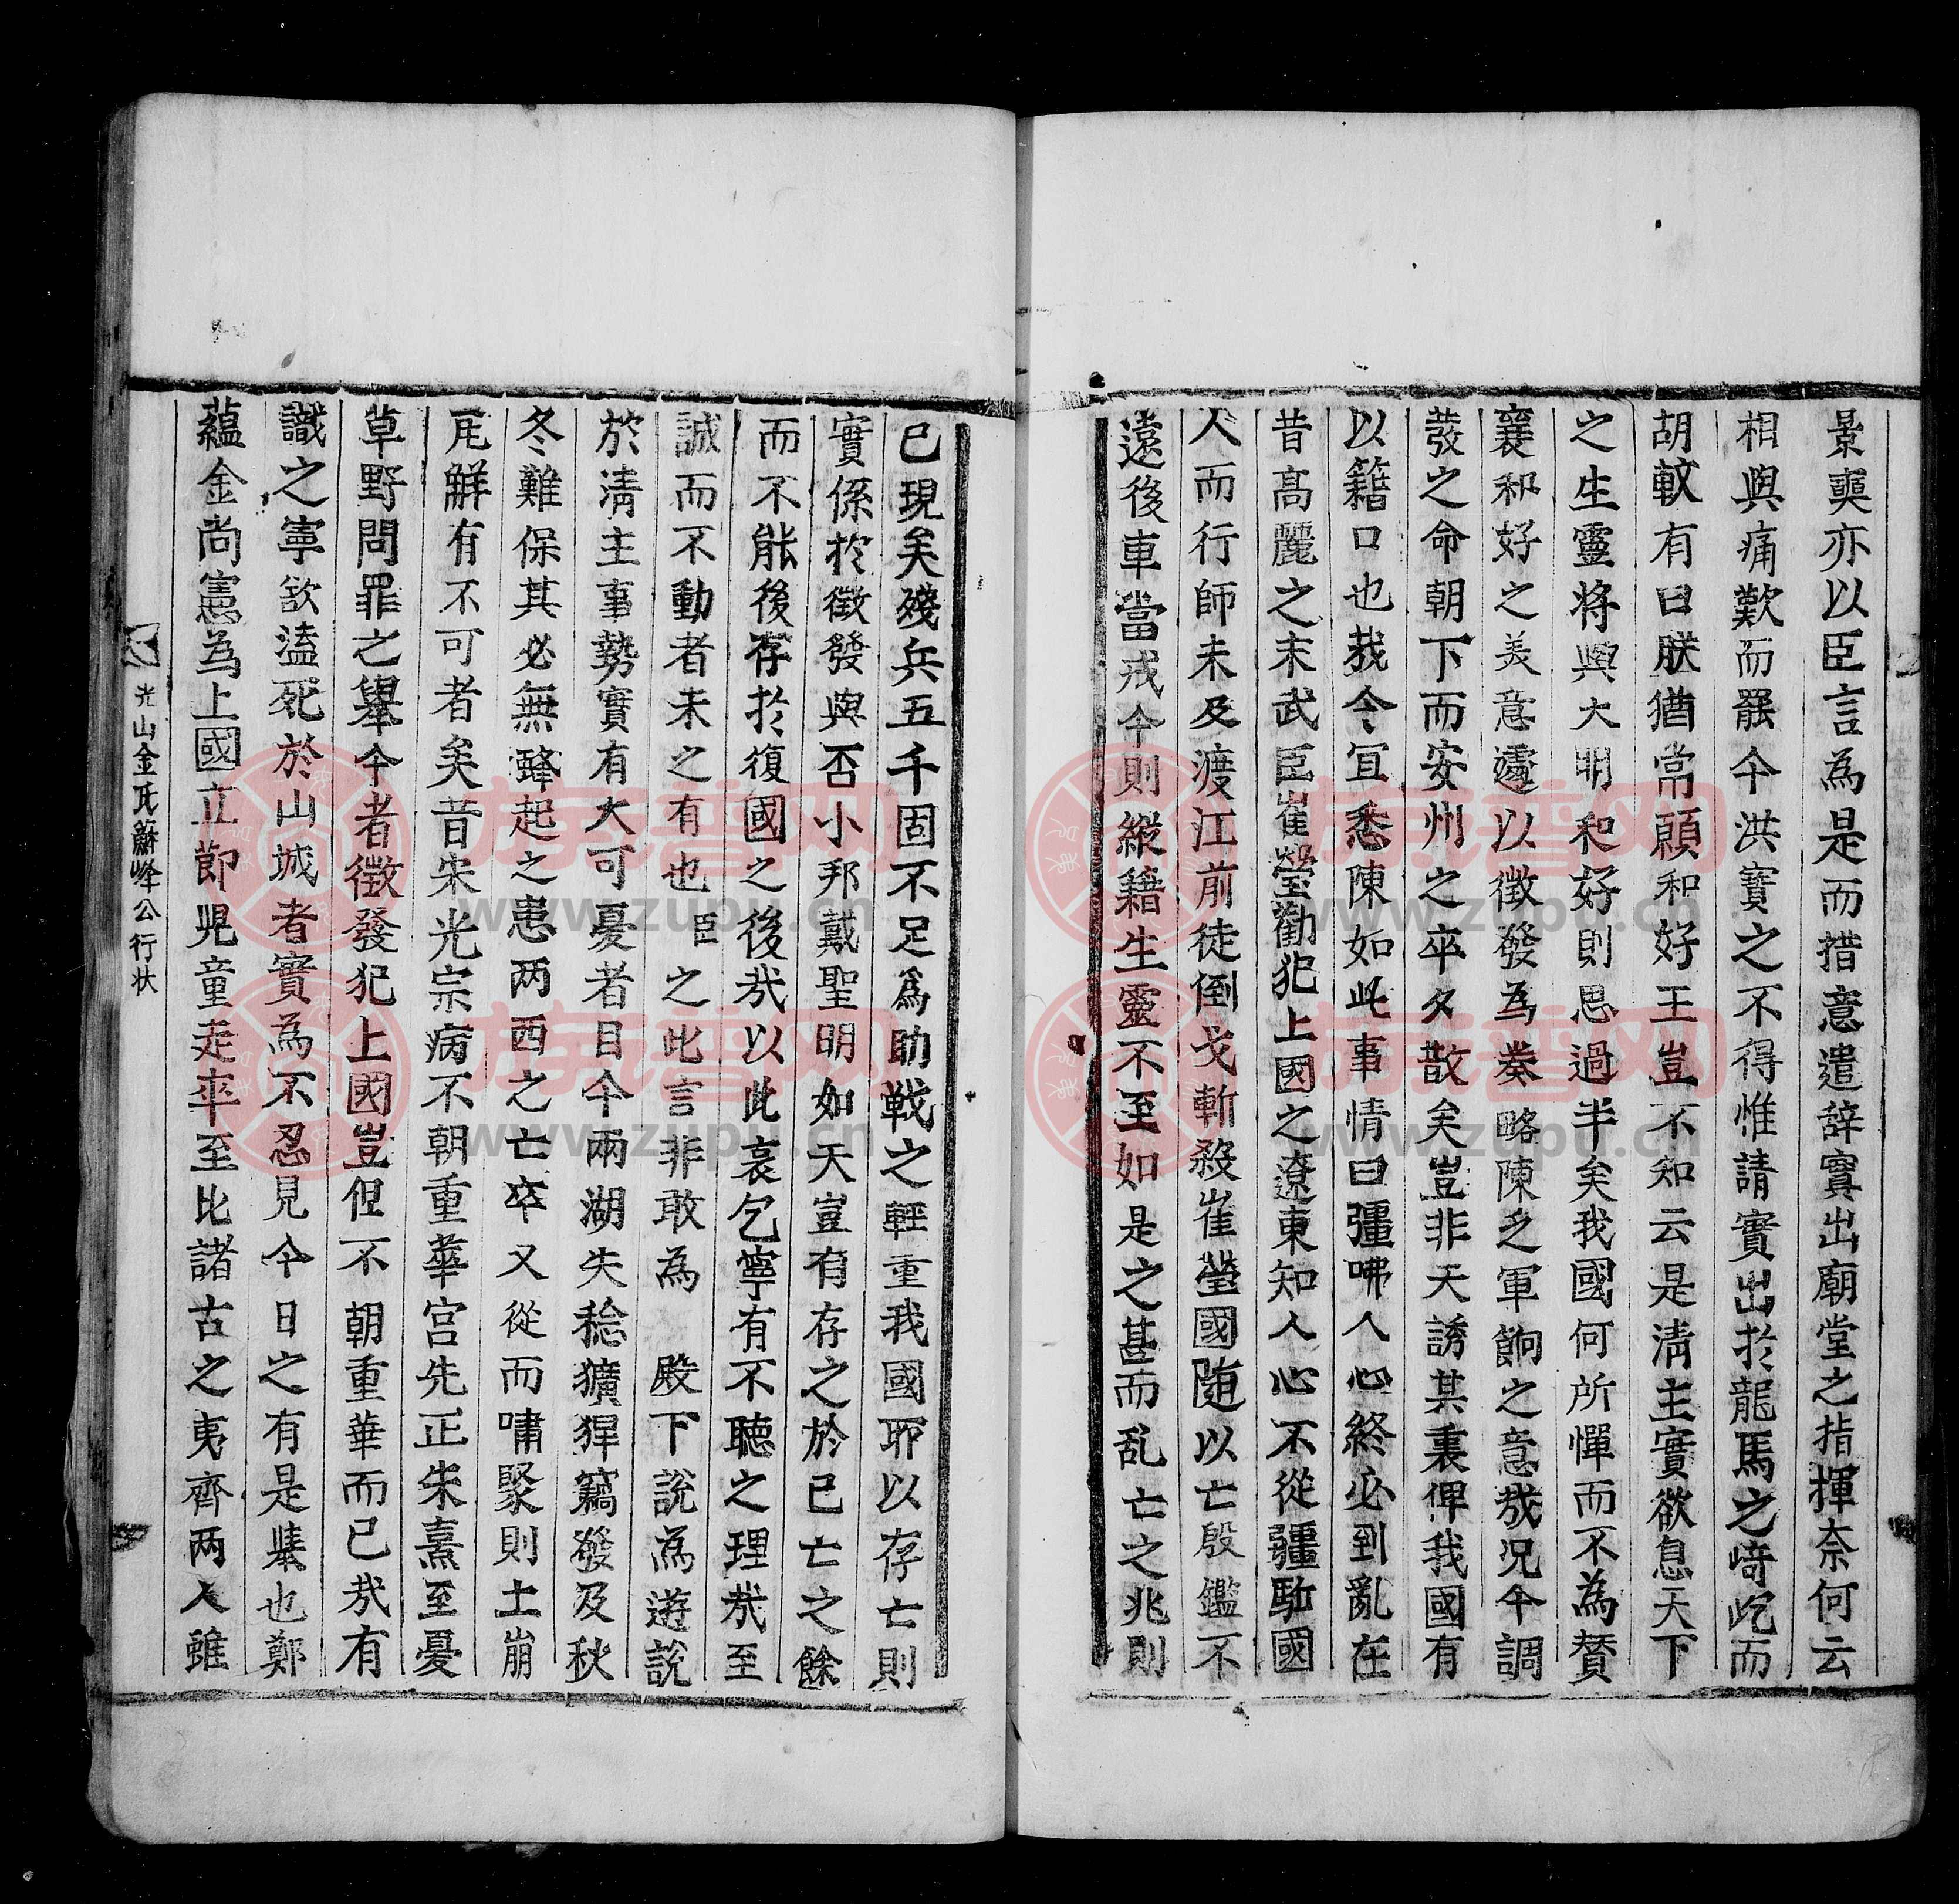 景奭亦以臣言為是而措意遣辞實出廟堂之指揮奈何云
相與痛歎而罷今洪寶之不得惟請實出於龍馬之﨑屹而
胡敕有曰朕猶常願和好王豈不知云是淸主實欲息天下
之生靈将與大明和好則思過半矣我國何所憚而不為賛
襄和好之美意遽以徴發為奏略陳乏軍餉之意㢤况今調
發之命朝下而安州之卒夕散矣豈非天誘其裏俾我國有
以籍口也㢤今冝悉陳如此事情曰彊咈人心終必到亂在
昔高麗之末武臣崔瑩勸犯上國之遼東知人心不從彊駈國
人而行師未及渡江前徒倒戈斬殺崔瑩國随以亡殷鑑不
遠後車當戎今則縱籍生靈不至如是之甚而乱亡之兆則
已現矣殘兵五千固不足爲助戰之輕重我國耶以存亡則
實係於徴發與否小邦戴聖明如天豈有存之於已亡之餘
而不能後存於復國之後㢤以此哀乞寧有不聴之理㢤至
誠而不動者未之有也臣之此言非敢為 殿下說為遊説
於淸主事勢實有大可憂者目今兩湖失稔獷猂竊發及秋
冬難保其必無蜂起之患两西之亡卒又從而嘯聚則土崩
瓦觧有不可者矣昔宋光宗病不朝重華宫先正朱熹至憂
草野問罪之舉今者徴發犯上國豈但不朝重華而已㢤有
識之寧欲溘死於山城者實為不忍見今日之有是擧也鄭
蘊金尚憲為上國立節児童走卒至比諸古之夷齊两人雖
光山金氏蘇峰公行状
族譜网
www.zupu.cn
族譜网
www.zupu.cn
族譜网
www.zupu.cn
族譜网
www.zupu.cn